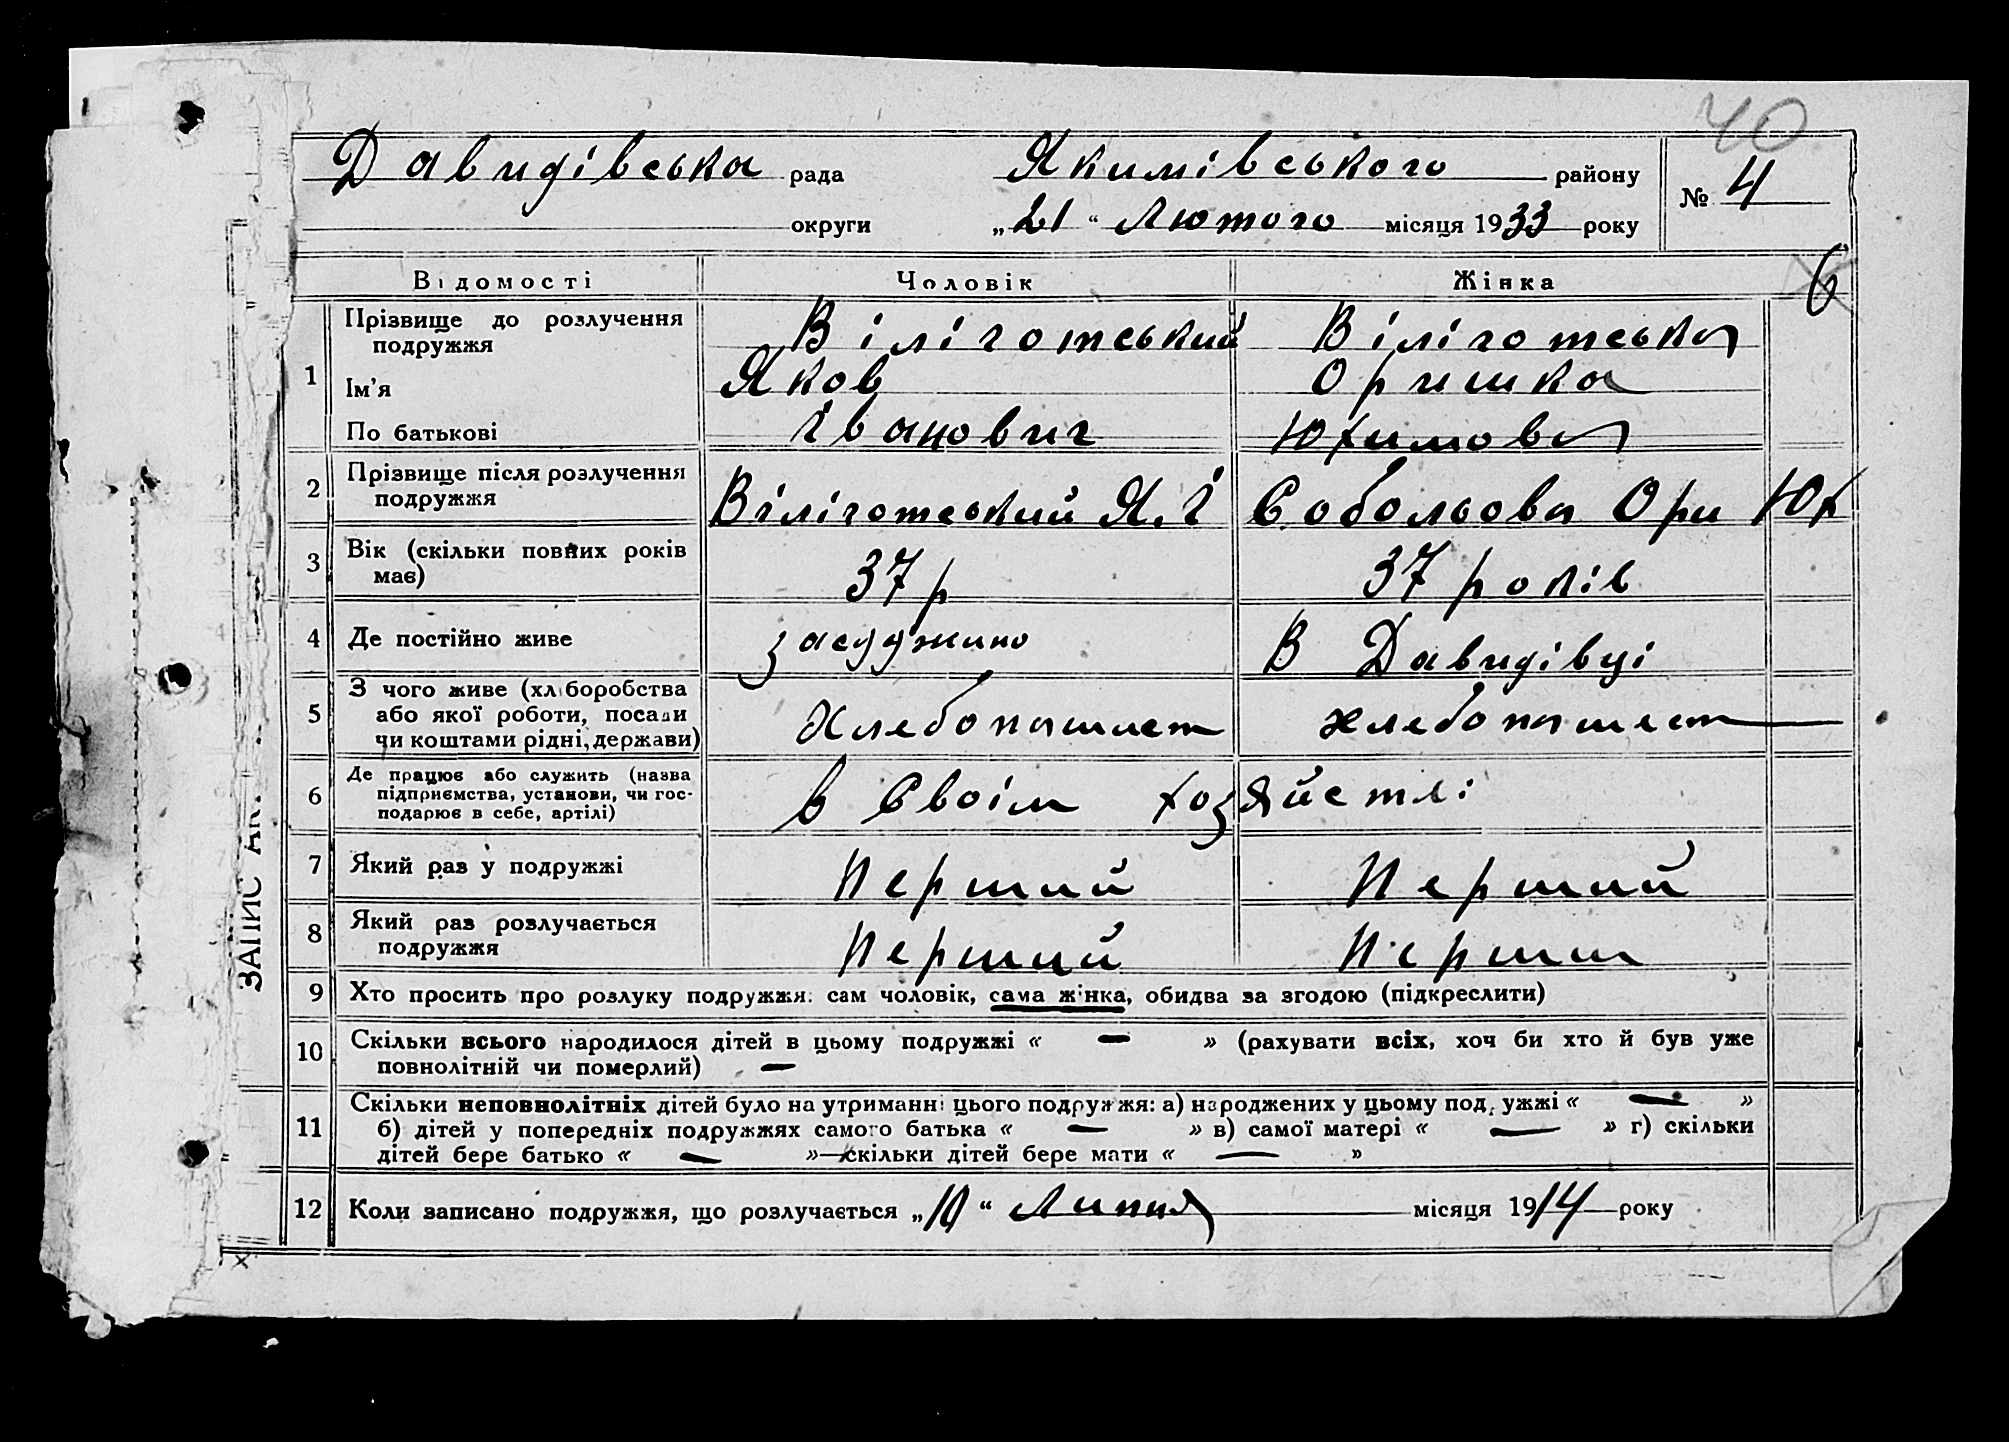 40
Давидівська рада Якимівського району № 4
округи „21“ Лютого місяця 1933 року
Відомості Чоловік Жінка 6
1 Прізвище до розлучення подружжя Віліготський Віліготська
Ім’я Яков Оришка
По батькові Іванович Юхимова
2 Прізвище після розлучення подружжя Віліготський Я. І Собольова Ори Юх
3 Вік (скільки повних років має) 37 р 37 років
4 Де постійно живе засуджино В Давидівці
5 З чого живе (хліборобства або якої роботи, посади чи коштами рідні, держави) Хлебопашест хлебопашест
6 Де працює або служить (назва підприємства, установи, чи господарює в себе, артілі) в Своім хозяйстві
7 Який раз у подружжі Перший Перший
8 Який раз розлучається подружжя Перший Перши
9 Хто просить про розлуку подружжя: сам чоловік, сама жінка, обидва за згодою (підкреслити)
10 Скільки всього народилося дітей в цьому подружжі « — » (рахувати всіх, хоч би хто й був уже
повнолітній чи померлий) —
11 Скільки неповнолітніх дітей було на утриманні цього подружжя: а) народжених у цьому подружжі « — »
б) дітей у попередніх подружжях самого батька « — » в) самої матері « — » г) скільки
дітей бере батько « — » — скільки дітей бере мати « — »
12 Коли записано подружжя, що розлучається „10“ Липня місяця 1914 року
ЗАПИС АК